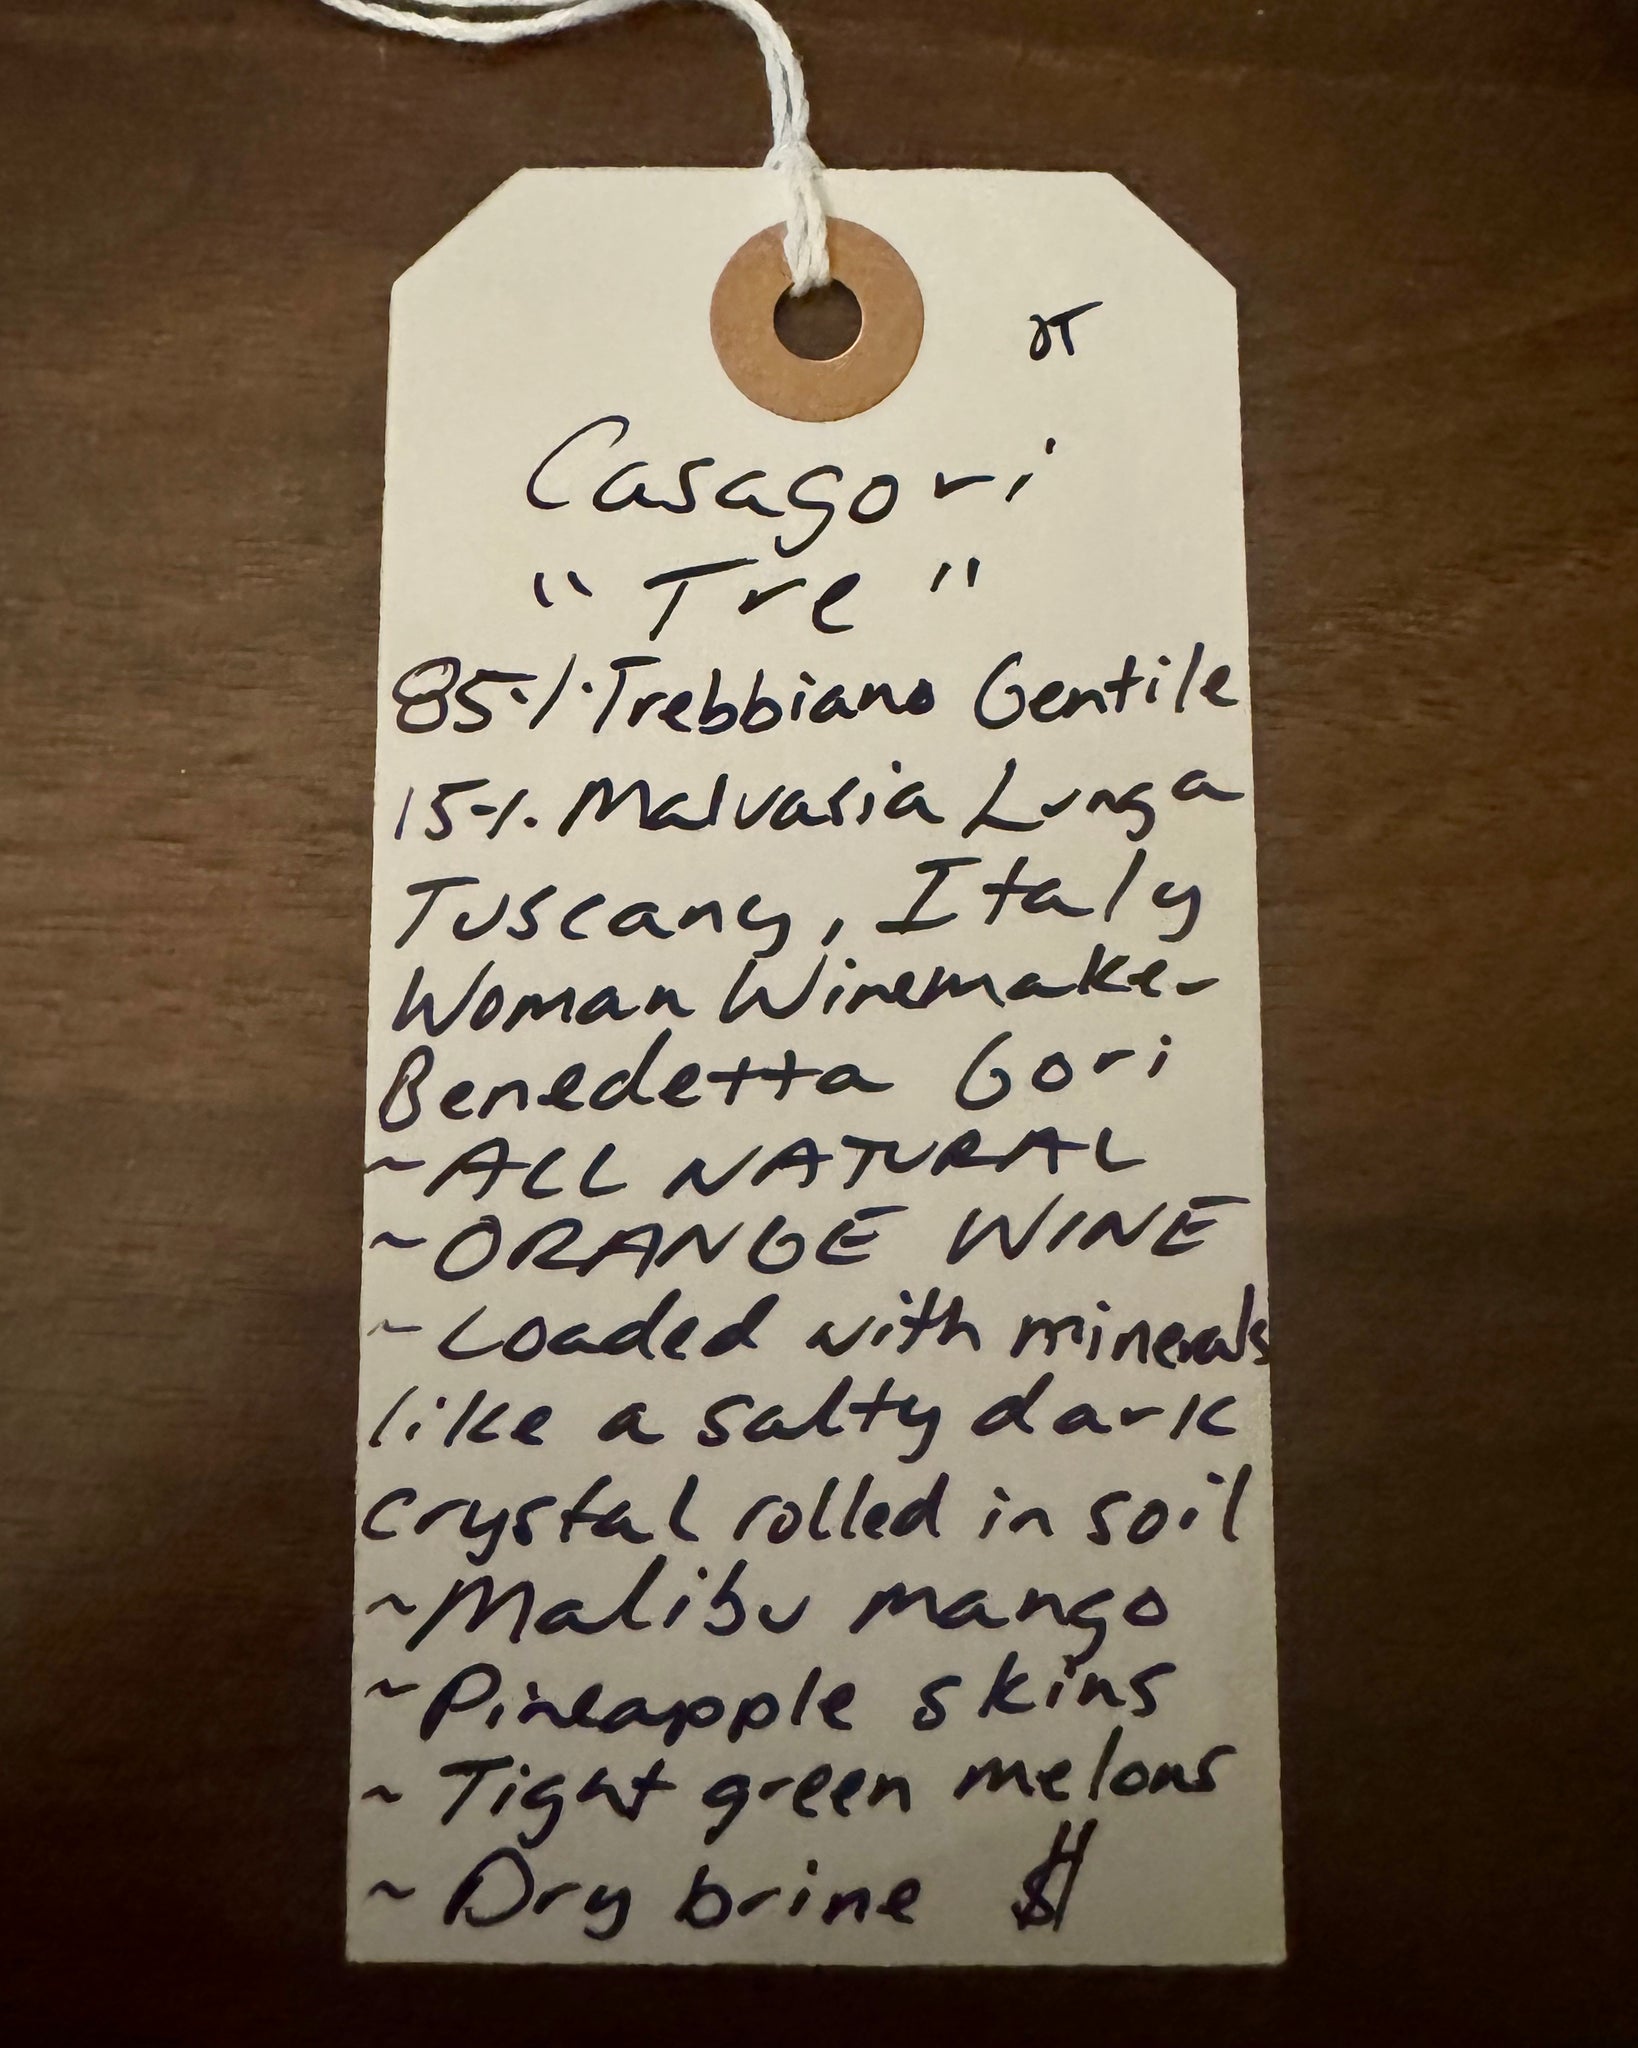 Casagori
"Tre"
85% Trebbiano Gentile
15% Malvasia Lunga
Tuscany, Italy
Woman Winemaker
Benedetta Gori
~ALL NATURAL
~ORANGE WINE
~Loaded with minerals
like a salty dark
crystal rolled in soil
~Malibu mango
~Pineapple skins
~Tight green melons
~Dry brine